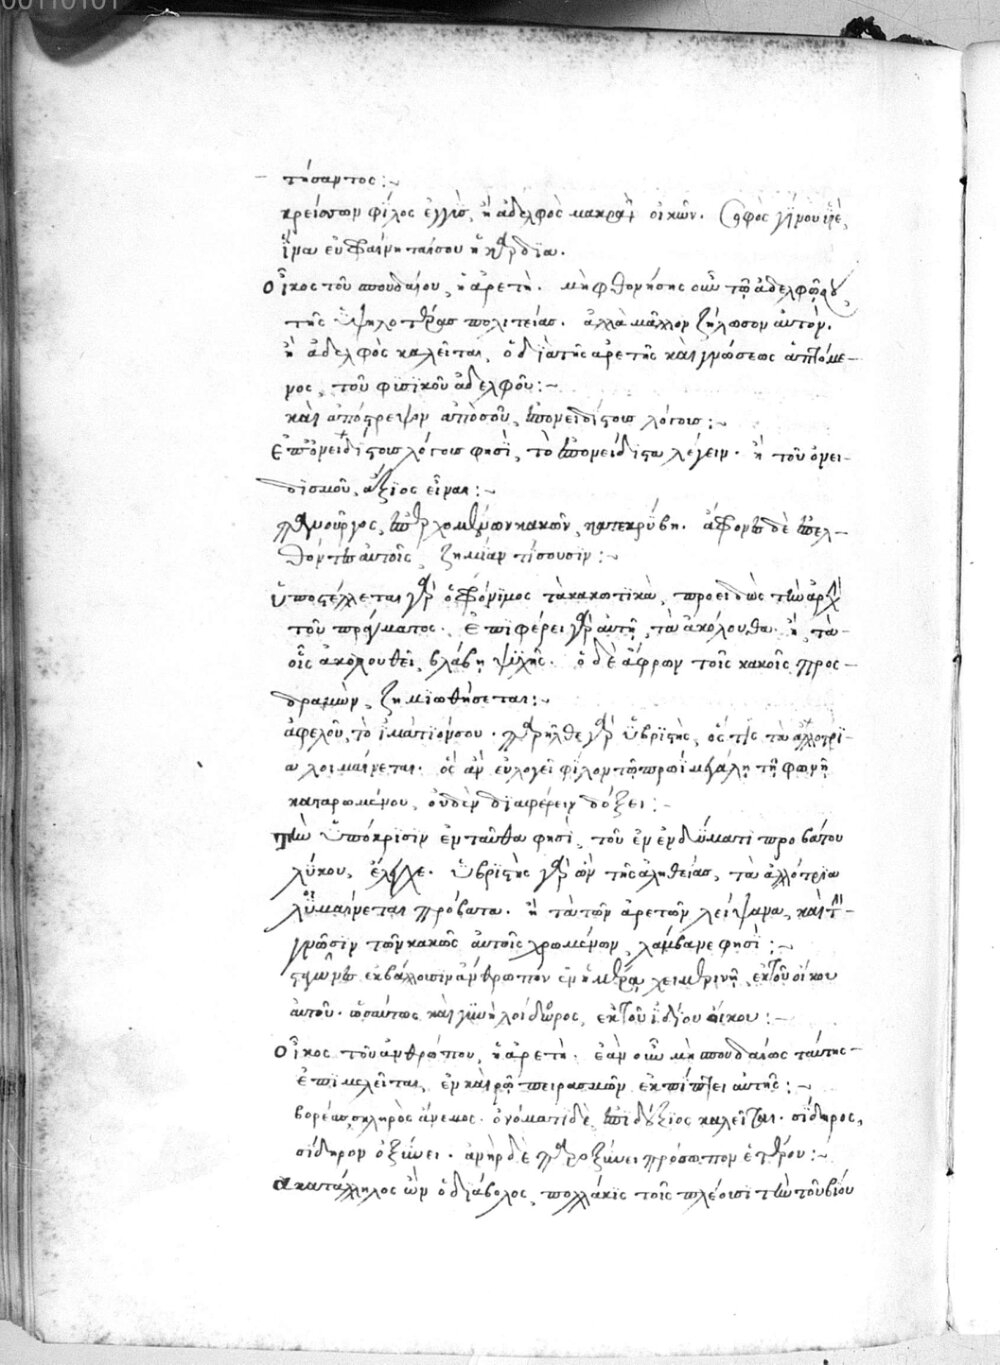 00110101
τήσαντος :~
κρείσσων φίλος ἐγγὺς, ἢ ἀδελφὸς μακρὰν οἰκῶν. σοφὸς γίνου υἱὲ,
ἵνα εὐφραίνηταί σου ἡ καρδία.
οἶκος τοῦ σπουδαίου, ἡ ἀρετή. μὴ φθονήσης οὖν τῷ ἀδελφῷ σου
τῆς ὑψηλοτέρας πολιτείας. ἀλλὰ μᾶλλον ζήλωσον αὐτόν.
ἢ ἀδελφὸς καλεῖται, ὁ διὰ τῆς ἀρετῆς καὶ γνώσεως ἁπτόμε-
νος, τοῦ φυσικοῦ ἀδελφοῦ :~
καὶ ἀπόστρεψον ἀπὸ σοῦ, ἐπονειδίστους λόγους :~
ἐπονειδίστους λόγους φησὶ, τὸ ἐπονείδιστα λέγειν. ἢ τοῦ ὀνει-
δισμοῦ, ἄξιος εἶναι :~
πανοῦργος, ἐπερχομένων κακῶν, ἀπεκρύβη. ἄφρονες δὲ ἐπελ-
θόντες αὐτοῖς, ζημίαν τίσουσιν :~
ὑποστέλλεται γὰρ ὁ φρόνιμος τὰ κακωτικὰ, προειδὼς τὴν ἀρχὴν
τοῦ πράγματος. ἐπιφέρει γὰρ αὐτῇ, τὰ ἀκόλουθα. ἢ, τὰ
οἷς ἀκολουθεῖ, βλάβη ψυχῆς. ὁ δὲ ἄφρων τοῖς κακοῖς προσ-
δραμὼν, ζημιωθήσεται :~
ἀφελοῦ, τὸ ἱμάτιόν σου. παρῆλθε γὰρ ὑβριστὴς, ὅς τις τὰ ἀλλότρι-
α λοιμαίνεται. ὃς ἂν εὐλογεῖ φίλον τῷ πρωῒ μεγάλη τῇ φωνῇ
καταρωμένου, οὐδὲν διαφέρειν δόξει :
τὴν ὑπόκρισιν ἐνταῦθα φησὶ, τοῦ ἐν ἐνδύματι προβάτου
λύκου, ἔλεγχε. ὑβριστὴς γὰρ ὢν τῆς ἀληθείας, τὰ ἀλλότρια
λυμαίνεται πρόβατα. ἢ τὰ τῶν ἀρετῶν λείψανα, καὶ τὴν
γνῶσιν τῶν κακῶς αὐτοῖς χρωμένων, λάμβανε φησὶ :~
σταγόνες ἐκβάλλουσιν ἄνθρωπον ἐν ἡμέρᾳ χειμερινῇ, ἐκ τοῦ οἴκου
αὐτοῦ. ὡσαύτως καὶ γυνὴ λοίδωρος, ἐκ τοῦ ἰδίου οἴκου :~
οἶκος τοῦ ἀνθρώπου, ἡ ἀρετή. ἐὰν οὖν μὴ σπουδαίως ταύτης
ἐπιμελεῖται, ἐν καιρῷ πειρασμῶν ἐκπίπτει αὐτῆς :~
βορέας, σκληρὸς ἄνεμος. ὀνόματι δὲ, ἐπιδέξιος καλεῖται. σίδηρος,
σίδηρον ὀξύνει. ἀνὴρ δὲ παροξύνει πρόσωπον ἑτέρου :~
ἀκατάλληλος ὢν ὁ διάβολος, πολλάκις τοῖς πλέουσι τὴν τοῦ βίου